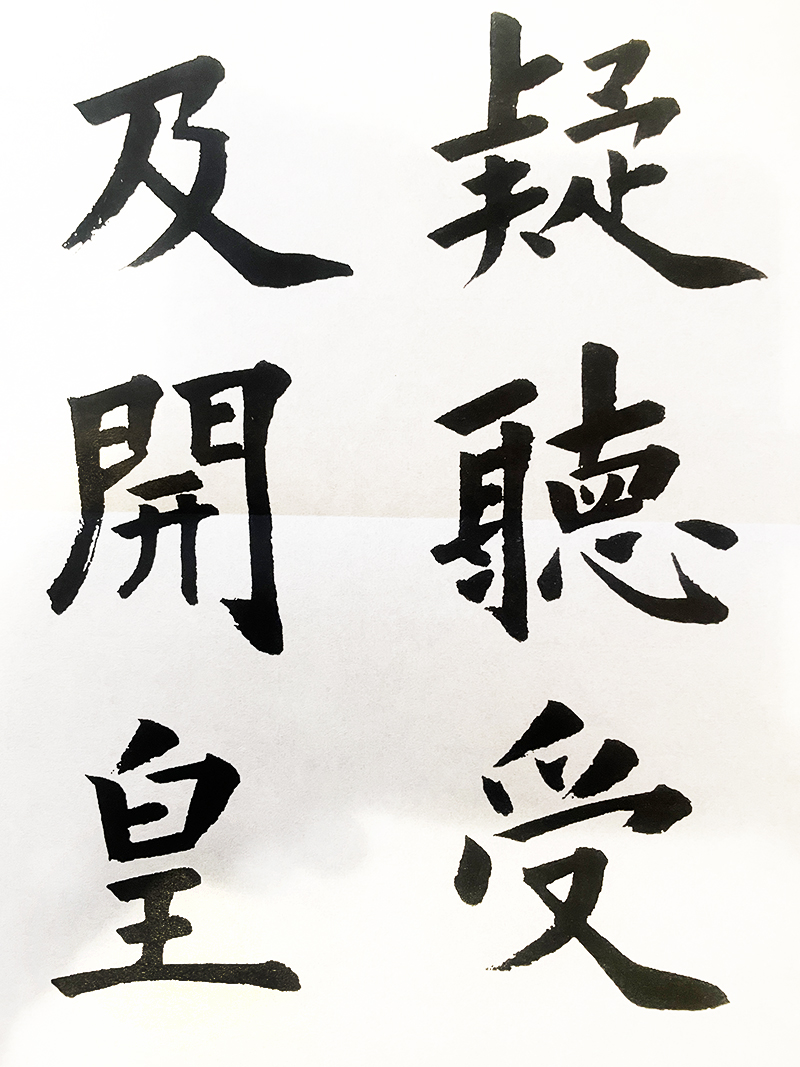 疑聽受
及開皇